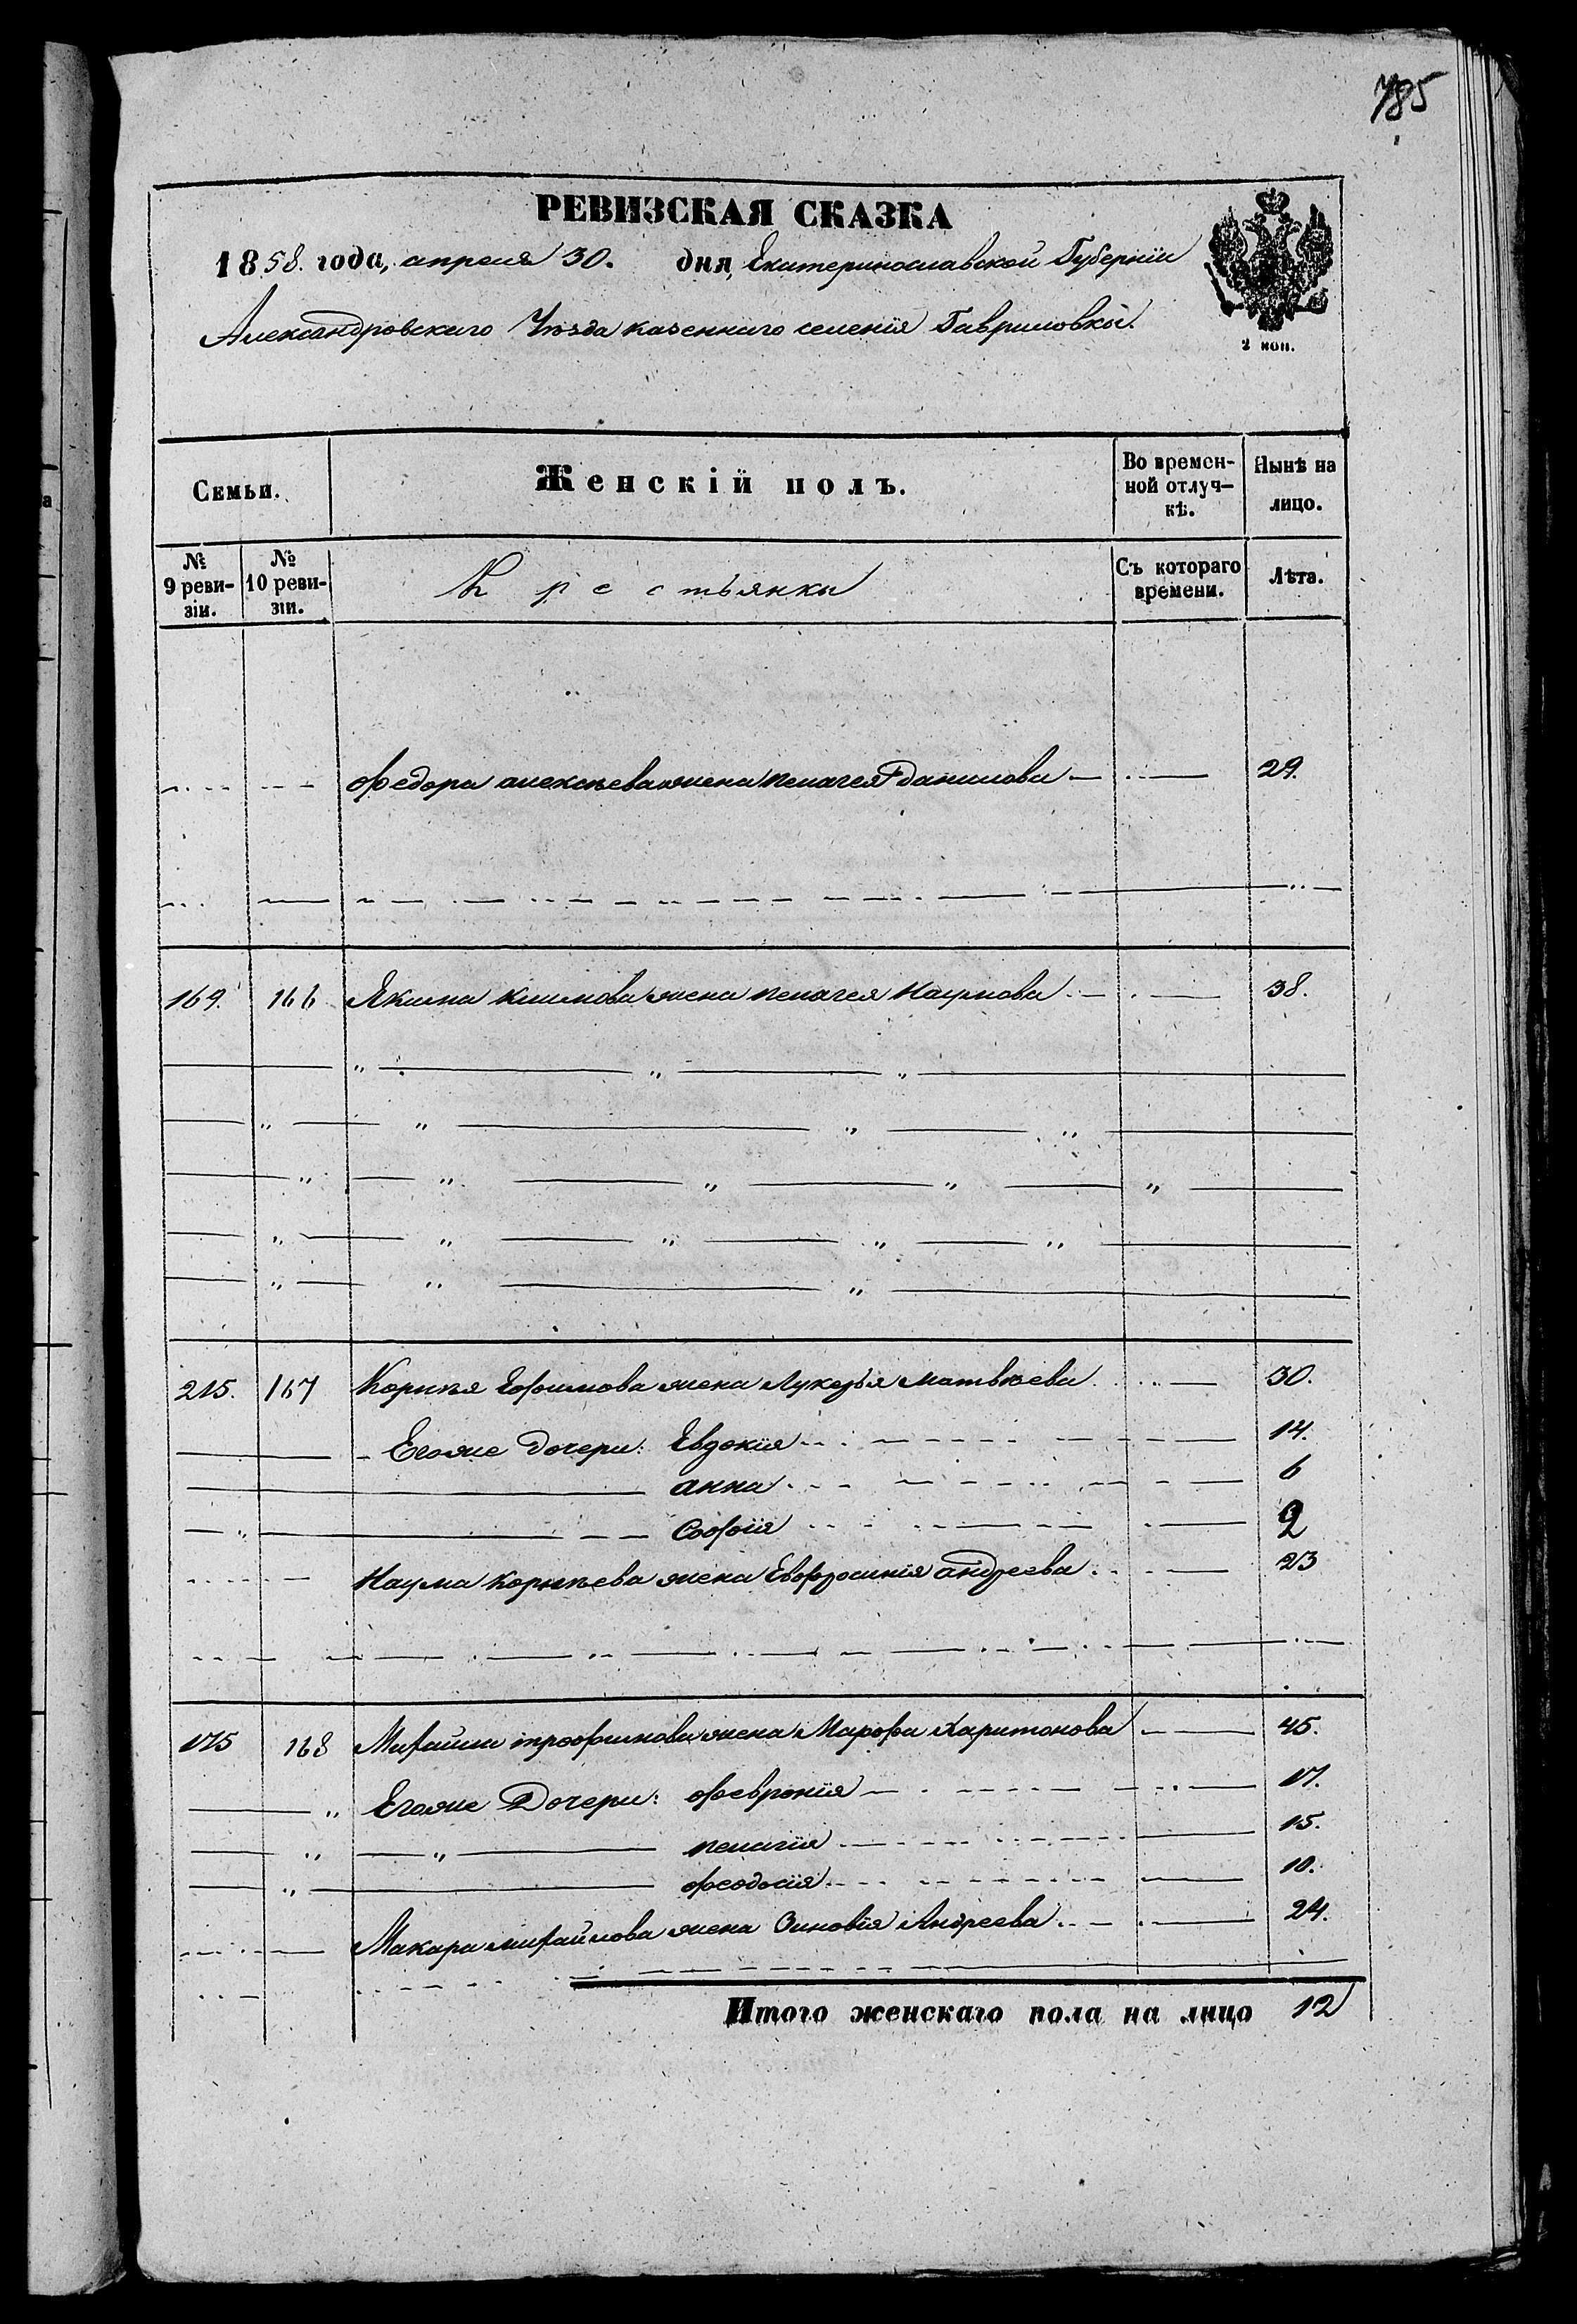 785
РЕВИЗСКАЯ СКАЗКА
1858. года, апреля 30. дня, Екатеринославской Губерніи
Александровскаго Уѣзда казеннаго селенія Гавриловки.
2 коп.
Семьи.
Женскій полъ.
Во времен-
ной отлуч-
кѣ.
Нынѣ на
лицо.
№
9 реви-
зіи.
№
10 реви-
зіи.
Крестьянки
Съ котораго
времени.
Лѣта.
Федора алексѣева жена пелагея данилова 29.
169. 166 Якима климова жена пелагея Наумова 38.
215. 167 Корнѣя Ефимова жена Лукерья матвѣева 30.
Егоже дочери: Евдокія 14.
анна 6
Софія 2
Наума корнѣева жена Евфросинія андреева 23
175 168 Михайли трофимова жена Марфа Харитонова 45.
Егоже Дочери: Февронія 17.
пелагія 15.
феодосія 10.
Макара михайлова жена Зиновія Андреева 24.
Итого женскаго пола на лицо 12